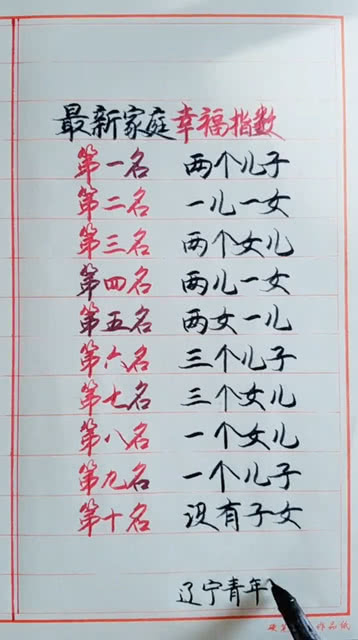 最新家庭幸福指数
第一名 两个儿子
第二名 一儿一女
第三名 两个女儿
第四名 两儿一女
第五名 两女一儿
第六名 三个儿子
第七名 三个女儿
第八名 一个女儿
第九名 一个儿子
第十名 没有子女
辽宁青年
作品纸